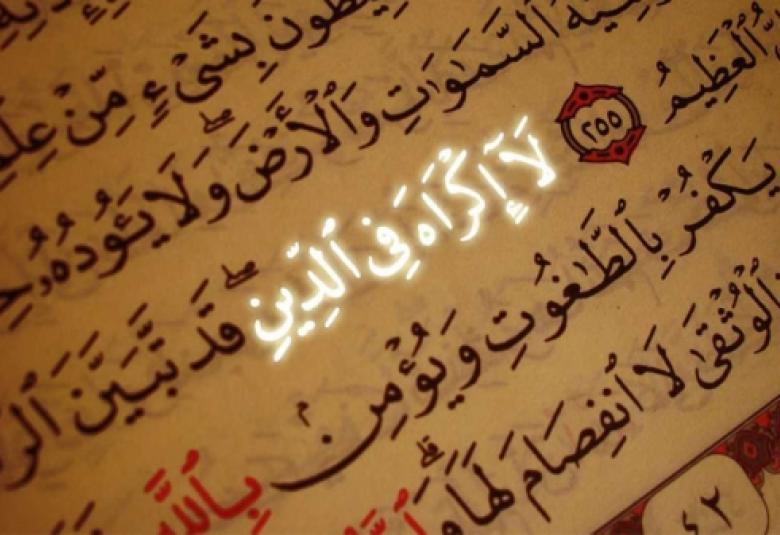 يطُونَ بِشَىْءٍ مِّنْ عِلْمِ
ٱلسَّمَٰوَٰتِ وَٱلْأَرْضَ ۖ وَلَا يَـُٔودُهُۥ حِ
ٱلْعَظِيمُ ٢٥٥ لَآ إِكْرَاهَ فِى ٱلدِّينِ ۖ قَد تَّبَيَّنَ ٱلر
يَكْفُرْ بِٱلطَّٰغُوتِ وَيُؤْمِنۢ بِٱللَّهِ
ٱلْوُثْقَىٰ لَا ٱنفِصَامَ لَهَا ۗ وَ
٤٢